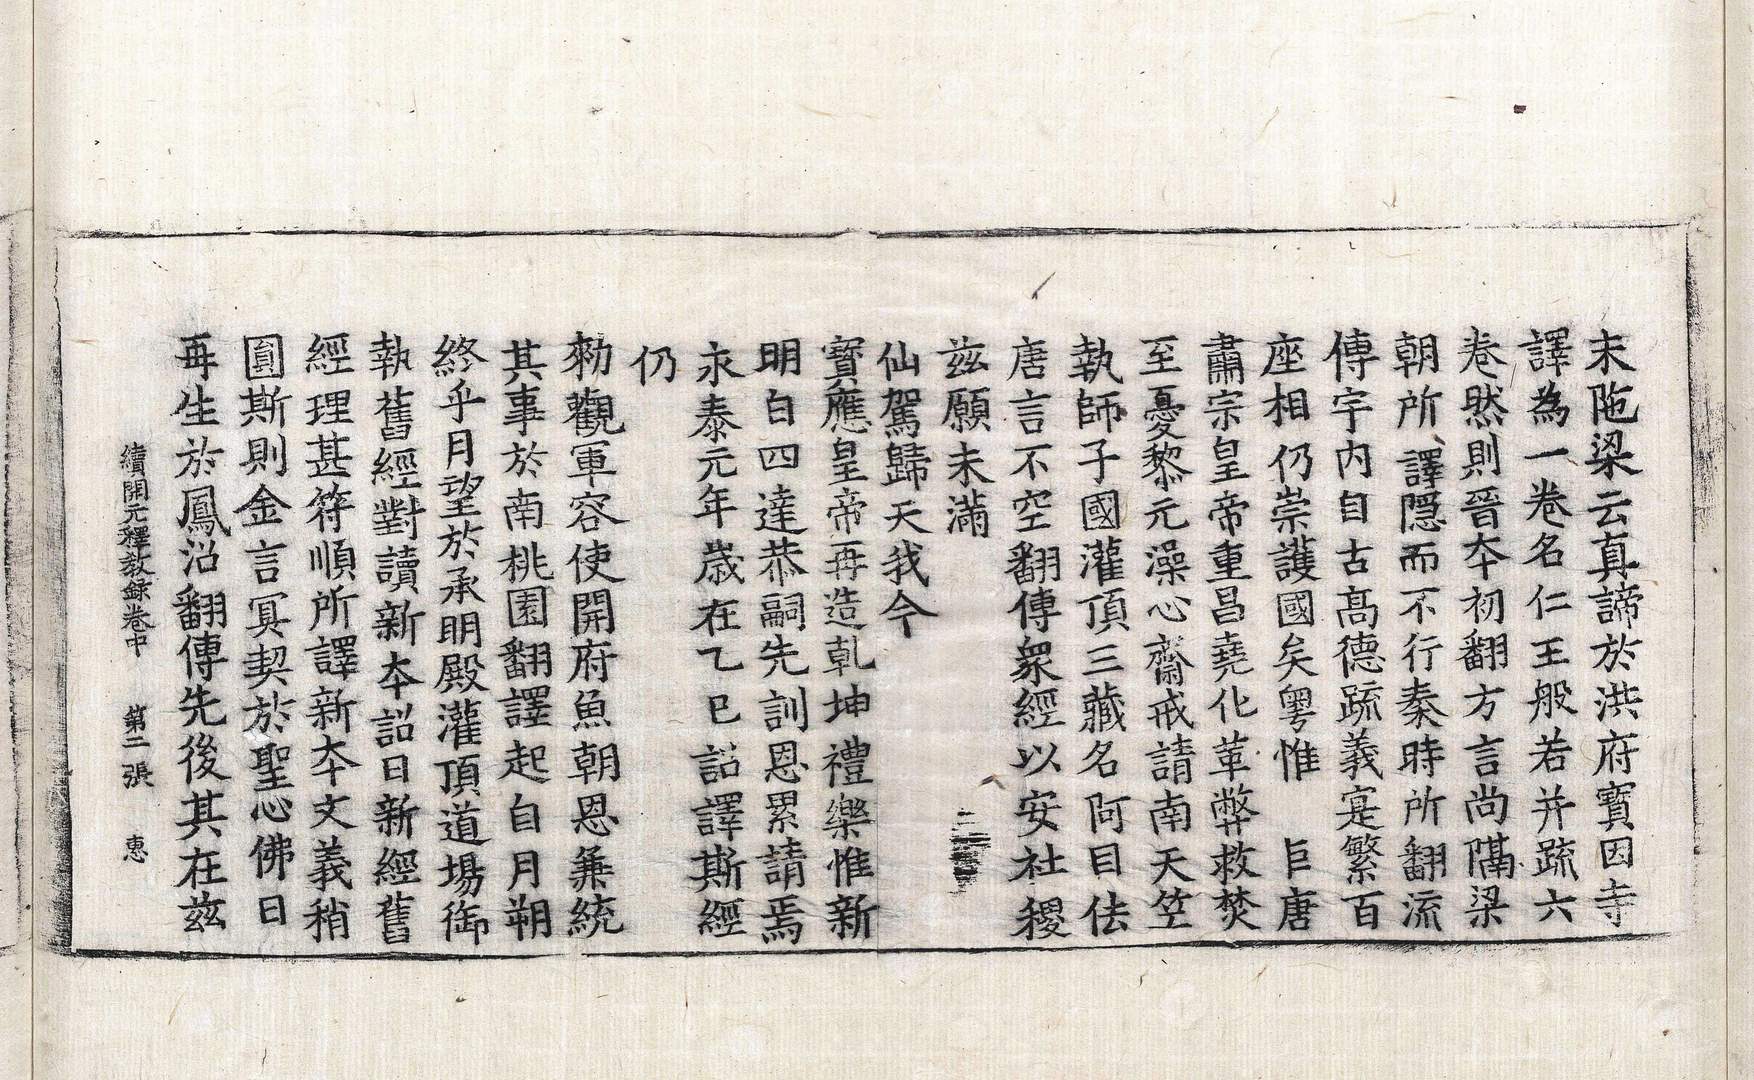 末陁梁云真諦於洪府寶因寺
譯為一卷名仁王般若并疏六
卷然則晉夲初翻方言尚隔梁
朝所譯隱而不行秦時所翻流
傳宇内自古髙德疏義寔繁百
座相仍崇護國矣粵惟　巨唐
肅宗皇帝重昌堯化革弊救焚
至憂黎元澡心齋戒請南天笁
執師子國灌頂三藏名阿目佉
唐言不空翻傳衆經以安社稷
兹願未滿
仙駕歸天我今
寶應皇帝再造乹坤禮樂惟新
明白四達恭嗣先訓恩累請焉
永泰元年歳在乙巳詔譯斯經
仍
勑觀軍容使開府魚朝恩兼統
其事於南桃園翻譯起自月朔
終乎月望於承明殿灌頂道場御
執舊經對讀新夲詔曰新經舊
經理甚符順所譯新夲文義稍
圓斯則金言冥契於聖心佛日
再生於鳳沼翻傳先後其在兹
續開元釋教錄卷中　第二張　惠